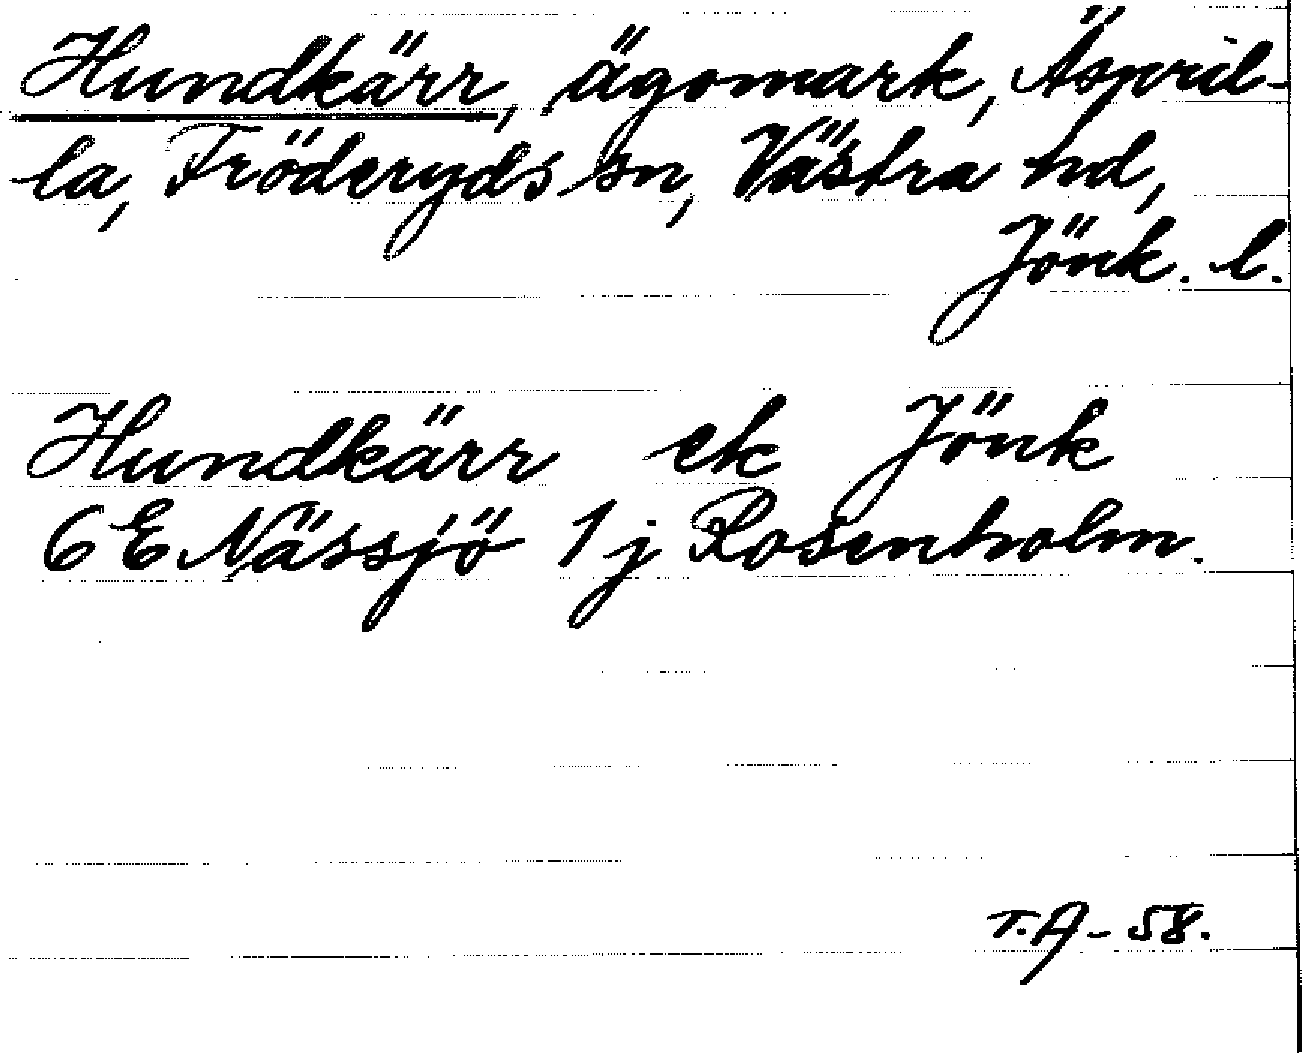 Hundkärr, ägomark, Äspril-
la, Fröderyds sn, Västra hd,
Jönk. l.
Hundkärr ek Jönk
6E Nässjö 1j Rosenholm.
T.A - 58.